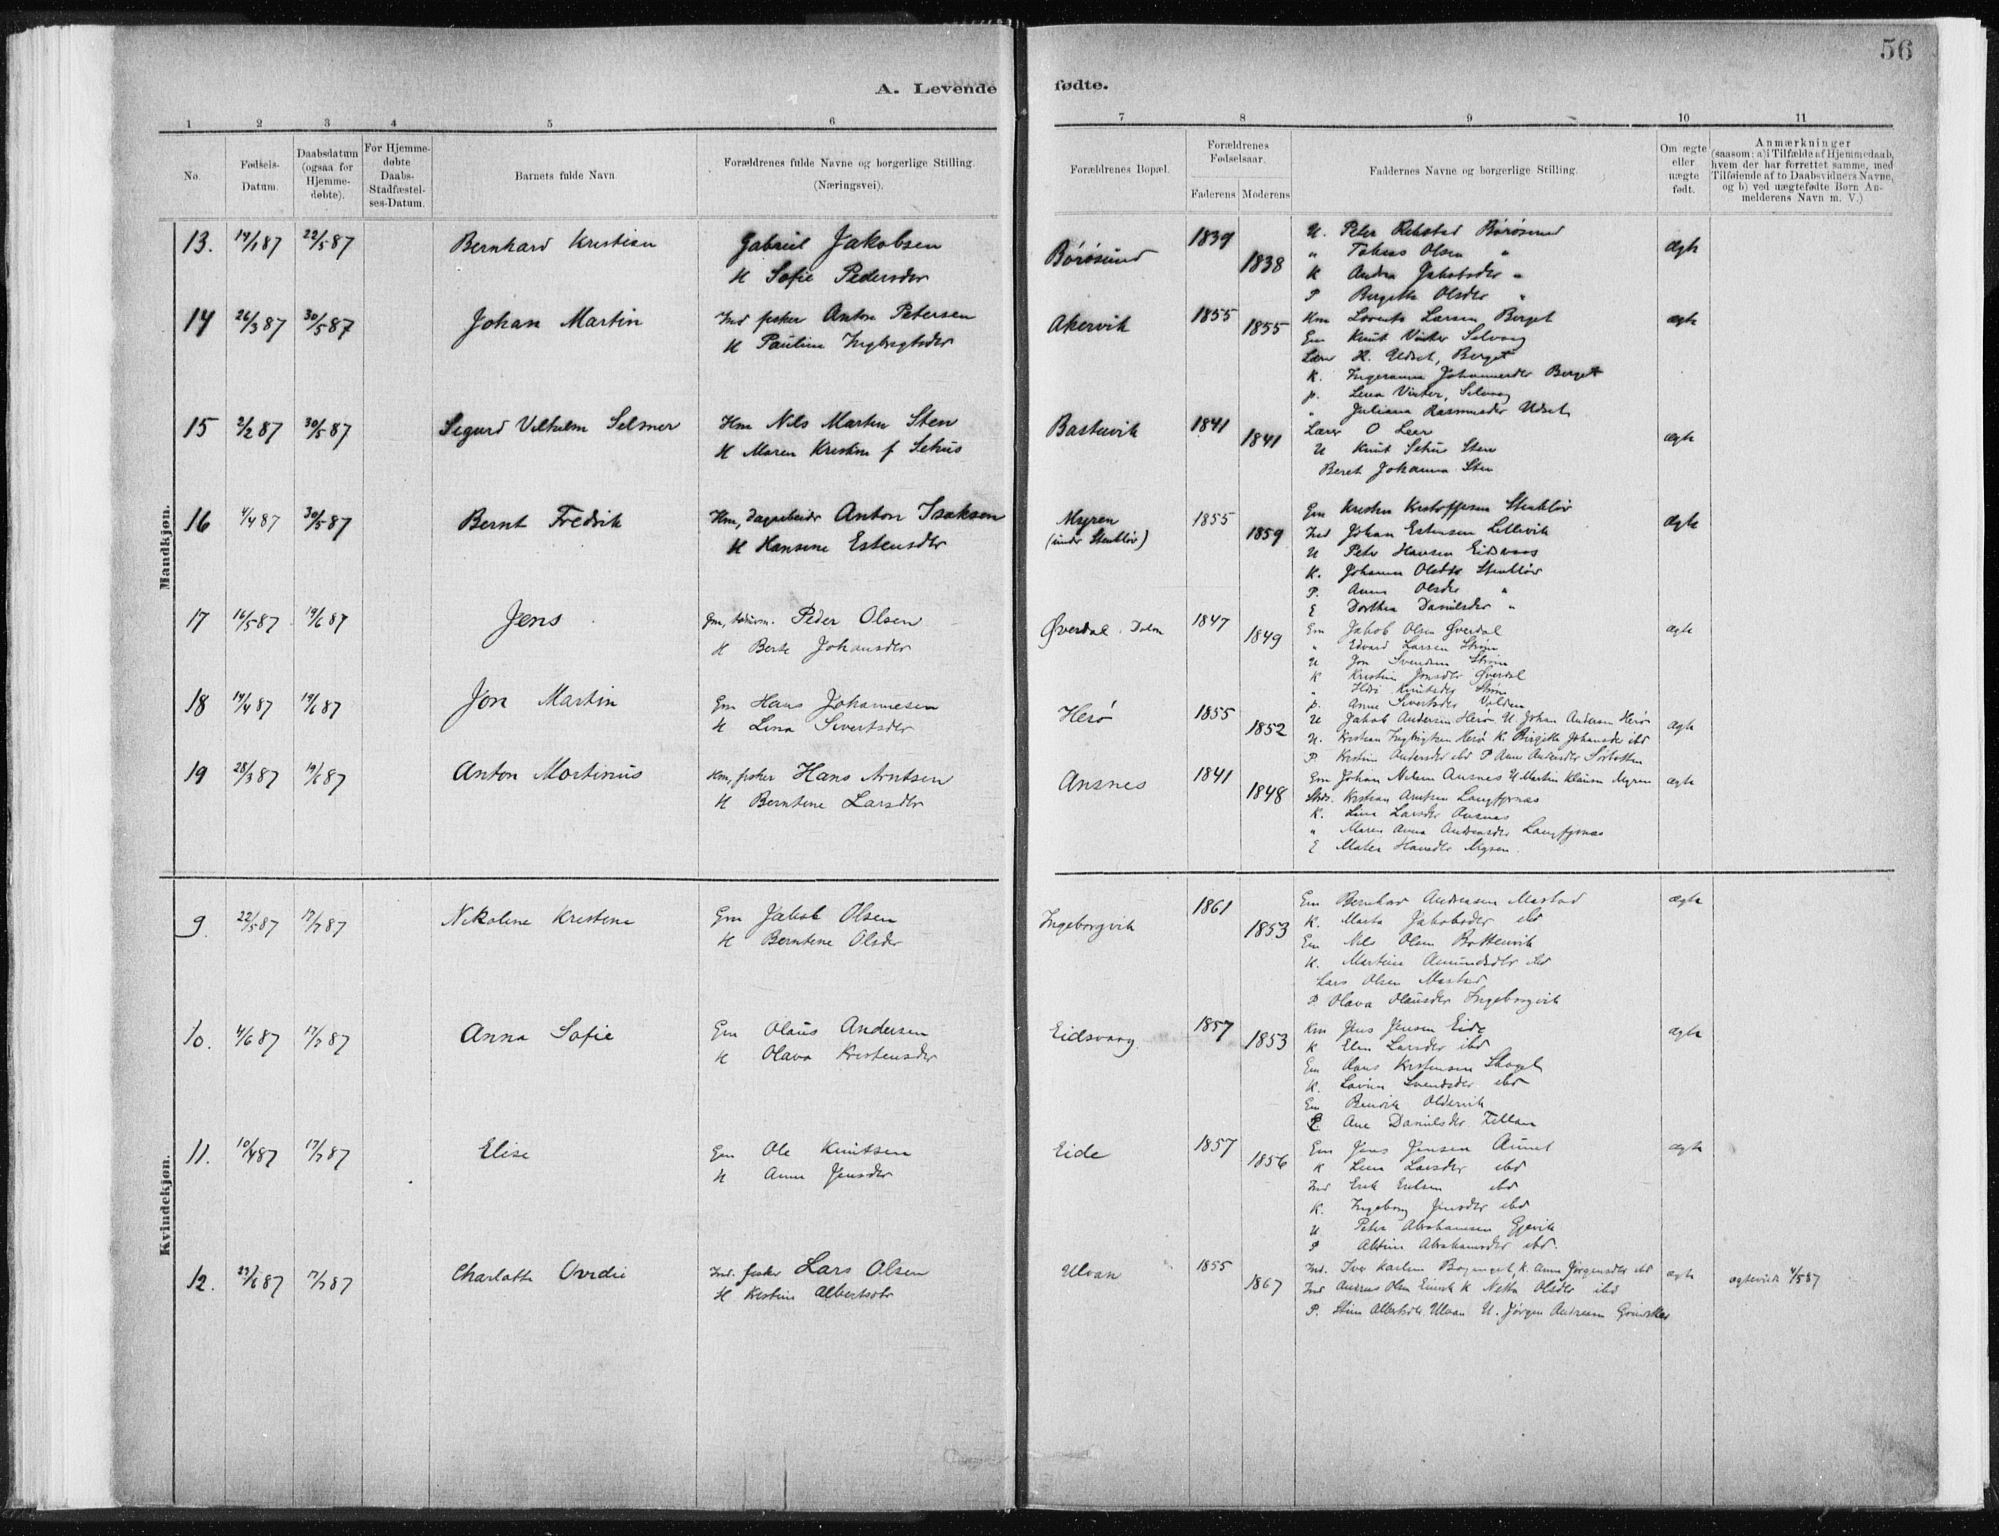 56
A. Levende fødte.
1 2 3 4 5 6 7 8 9 10 11
No.
Fødsels-Datum.
Daabsdatum (ogsaa for Hjemme-døbte).
For Hjemme-døbte Daabs-Stadfæstel-ses-Datum.
Barnets fulde Navn
Forældrenes fulde Navne og borgerlige Stilling. (Næringsvei).
Forældrenes Bopæl.
Forældrenes Fødselsaar.
Faderens Moderens
Faddernes Navne og borgerlige Stilling.
Om ægte eller uægte født.
Anmærkninger (saasom: a) i Tilfælde af Hjemmedaab, hvem der har forrettet samme, med Tilføiende af to Daabsvidners Navne, og b) ved uægtefødte Børn An-melderens Navn m. V.)
Mandkjøn.
13. 14/1 87 22/5 87 Bernhard Kristian Gabriel Jakobsen Børøsund 1839 U. Peter Rebstad Børøsund ægte
H Sofie Pedersdtr 1838 " Tobias Olsen "
K Andrea Jakobsdtr "
P Bergitte Olsdtr "
14 26/3 87 30/5 87 Johan Martin Ind fisker Anton Petersen Akervik 1855 Km Lorents Larsen Berget ægte
H Pauline Ingbrigtsdtr 1855 Gm Knut Vinter Selvaag
Lærer H. Udset, Berget
K. Ingeranna Johannesdtr Berget
p. Lena Vinter, Selvaag
" Juliana Rasmusdtr Udset
15 2/2 87 30/5 87 Sigurd Vilhelm Selmer Hm Nils Martin Sten Bastuvik 1841 Lærer O Leer ægte
H Maren Kristine f Sehus 1841 U Knut Sehus Sten
Beret Johanna Sten
16 4/4 87 30/5 87 Bernt Fredrik Hm, dagarbeidr Anton Isaksen Myren 1855 Gm Kristen Kristoffersen Stenkløv ægte
H Hansine Estensdtr (under Stenkløv) 1859 Ind Johan Estensen Lillevik
U Peter Hansen Eidsvaag
K. Johanna Olsdtr Stenkløv
P. Anna Olsdtr "
E Dorthea Danielsdtr "
17 16/5 87 19/6 87 Jens Peder Olsen Øverdal. Dolm 1847 Gm Jakob Olsen Øverdal ægte
H Berte Johansdtr 1849 " Edvard Larsen Strøm
U Jon Svendsen Strøm
K Kristine Jonsdtr Øverdal
" Knutsdtr Strøm
p. Anne Sivertsdtr Valden
18 14/4 87 19/6 87 Jon Martin Gm Hans Johannesen Herø 1855 U Jakob Andersen Herø U. Johan Andersen Herø ægte
H Lina Sivertsdtr 1852 U. Kristian Ingbrigtsen Herø K. Birgitte Johansdtr ibd
P Kristine Andersdtr ibd P Anne Andersdtr
19 28/3 87 19/6 87 Anton Mortinus Hm, fisker Hans Arntsen Ansnes 1841 Gm Johan Nilsen Ansnes U Martin Klausen Myren ægte
H Berntine Larsdtr 1848 Kristian Arntsen Langfjernæs
K. Lina Larsdtr Ansnæs
" Maren Anna Andreasdtr Langfjernæs
E Hansdtr Myren.
Kvindekjøn.
9. 22/5 87 17/7 87 Nikoline Kristine Gm Jakob Olsen Ingeborgvik 1861 Gm Bernhard Andreasen Mastad ægte
H Berntine Olsdtr 1853 K. Marta Jakobsdtr ibd
Gm Nils Olsen Bottenvik
K. Martine Amundsdtr ibd
Lars Olsen Mastad
P Olava Olausdtr Ingeborgvik
10. 4/6 87 17/7 87 Anna Sofie Gm Olaus Andersen Eidsvaag 1857 Km Jens Jensen Eide ægte
H Olava Kristensdtr 1853 K Elen Larsdtr ibd
Gm Kristensen Skaget
K. Lovise Svendsdtr ibd
Gm Oldervik
E Ane Danielsdtr
11. 10/4 87 17/7 87 Elise Gm Ole Knutsen Eide 1857 Gm Jens Jensen Aunet ægte
H Anne Jensdtr 1856 K Lina Larsdtr ibd
Ind Erik Eriksen ibd
K. Ingeborg Jensdtr ibd
U Peter Abrahamsen Gjevik
P Abrahamsdtr ibd.
12. 23/6 87 17/7 87 Charlotte Ovidie Ind. fisker Lars Olsen Ulvan 1855 Ind. Iver Karlsen, K. Anne Jørgensdtr ibd ægte ægteviede 4/5 87
H Kristine Albertsdtr 1867 Ind Andreas Olsen K Netta Olsdtr ibd
P. Stine Albertsdtr. Ulvan U. Jørgen Andersen